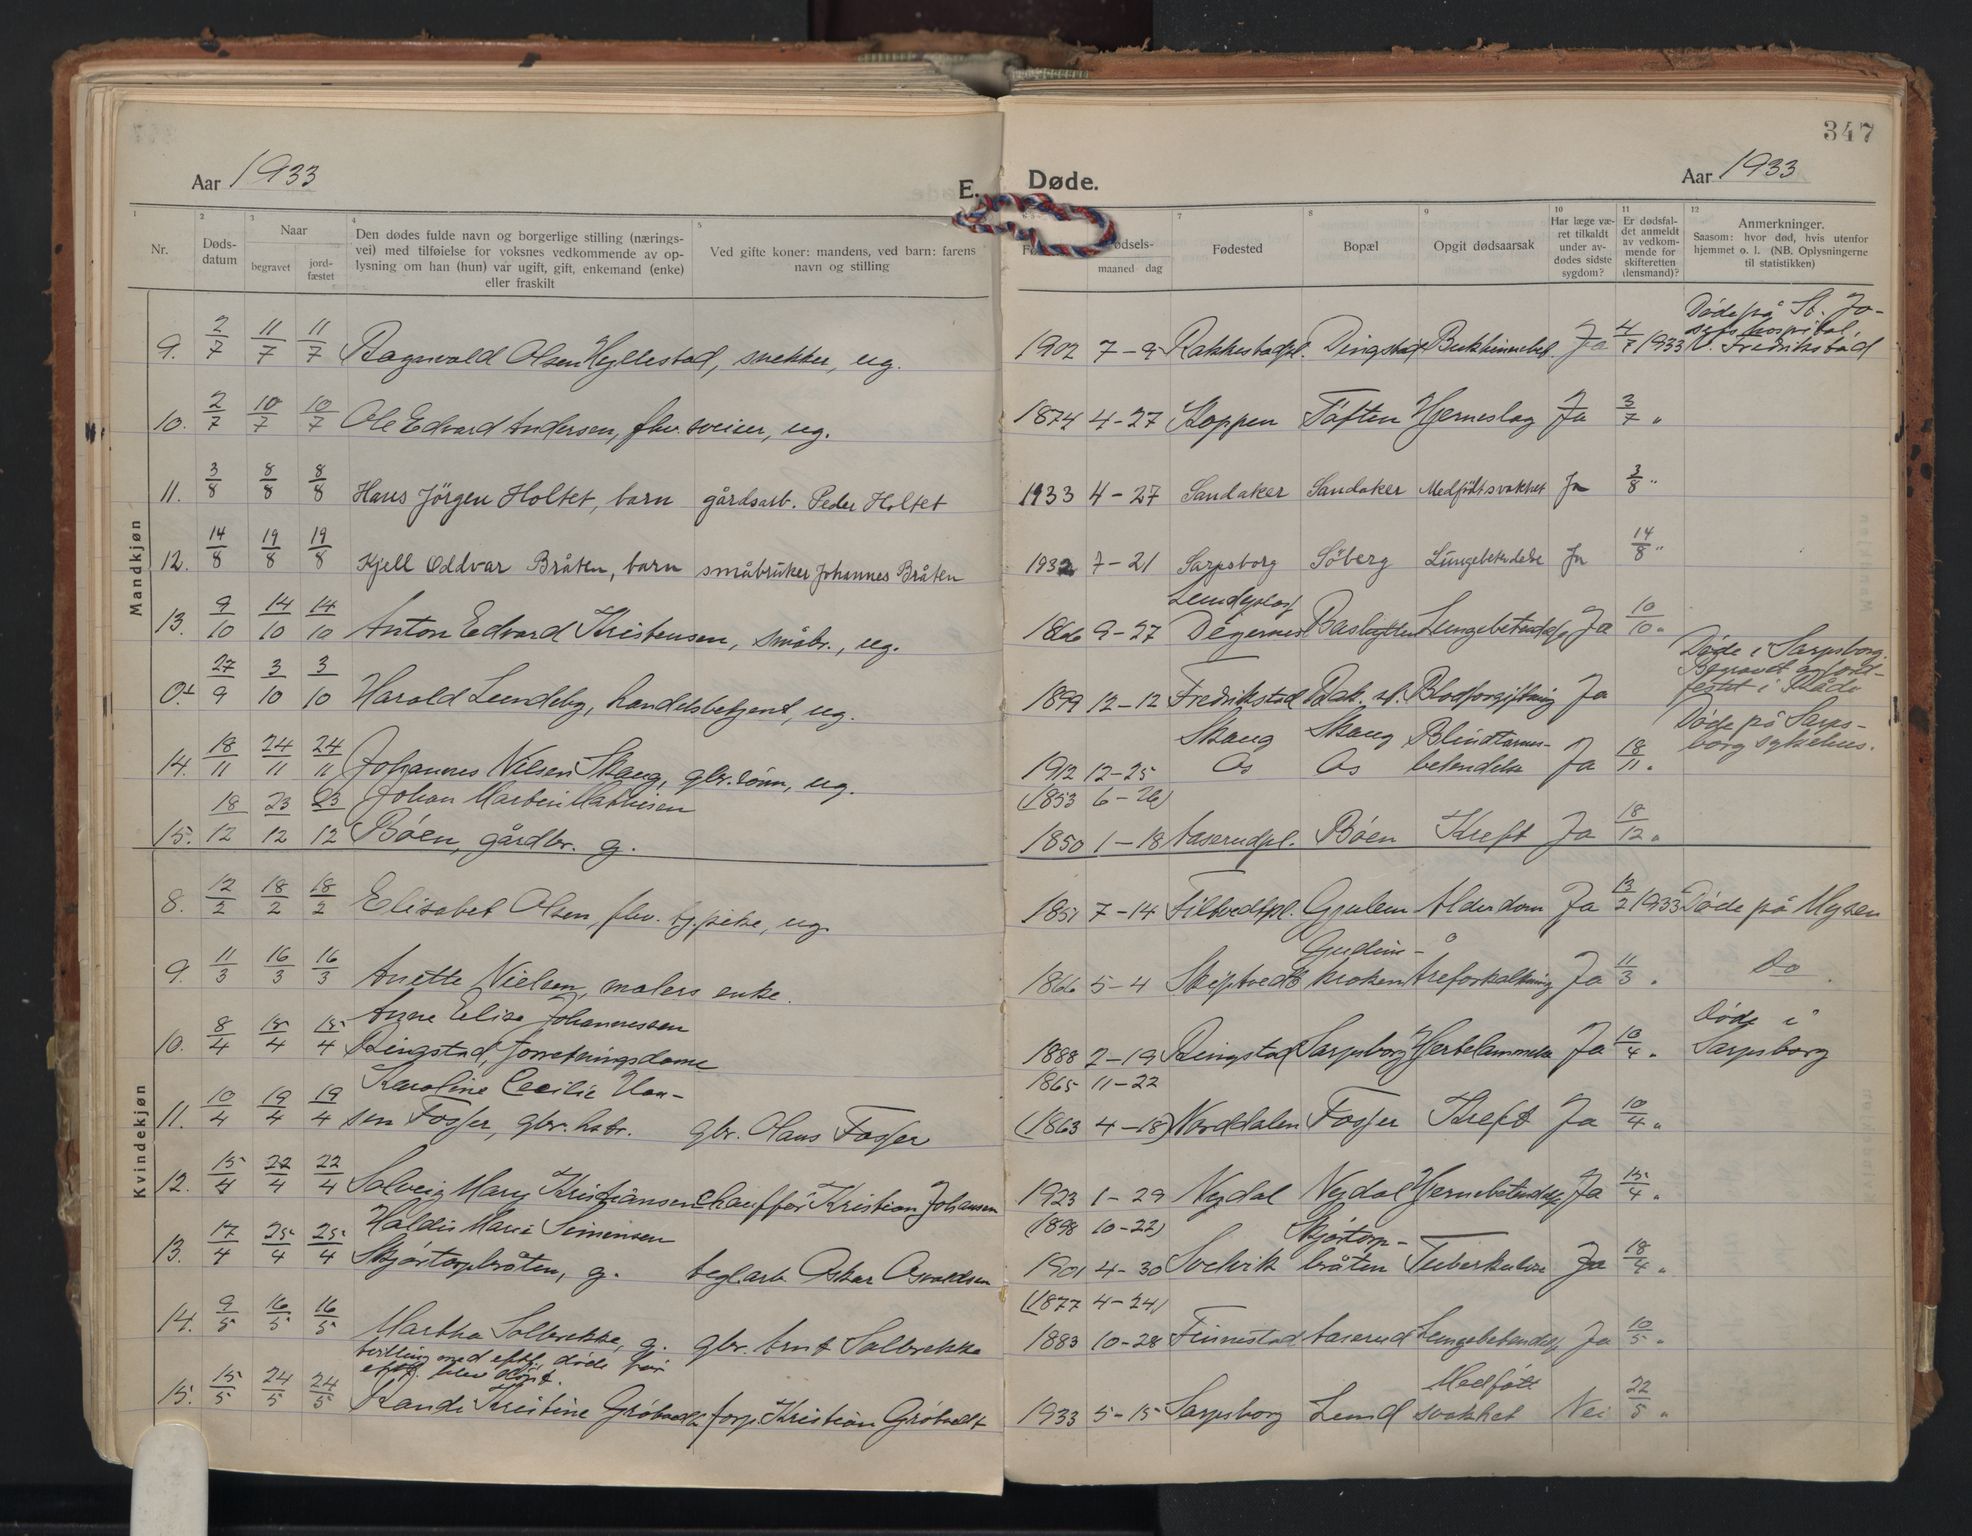 347
Aar 1933 E. Døde. Aar 1933
1 2 3 4 5 6 7 8 9 10 11 12
Nr. Døds-datum Naar begravet jord-fæstet
Den dødes fulde navn og borgerlige stilling (nærings-
vei) med tilføielse for voksnes vedkommende av op-
lysning om han (hun) var ugift, gift, enkemand (enke)
eller fraskilt
Ved gifte koner: mandens, ved barn: farens
navn og stilling
maaned dag
Fødested Bopæl Opgit dødsaarsak
Har læge væ-
ret tilkaldt
under av-
dødes sidste
sygdom?
Er dødsfal-
det anmeldt
av vedkom-
mende for
skifteretten
(lensmand)?
Anmerkninger.
Saasom: hvor død, hvis utenfor
hjemmet o. l. (NB. Oplysningerne
til statistikken)
Mandkjøn
9. 2/7 11/7 11/7 Ragnvald Olsen Hyllestad, snekker, ug. 1902 7-9 Rakkestadpl. Ja 4/7 1933 Døde på St. Jo-
sefs hospital, Fredrikstad
10. 2/7 10/7 10/7 Ole Edvard Andersen, fhv. sveiser, ug. 1874 4-27 Koppen Toften Hjerneslag Ja 3/7 "
11. 3/8 8/8 8/8 Hans Jörgen Holtet, barn gårdsarb. Peder Holtet 1933 4-27 Sandaker Sandaker Medfödt svakhet Ja 3/8 "
12. 14/8 19/8 19/8 Kjell Oddvar Bråten, barn småbruker Johannes Bråten 1932 7-21 Sarpsborg Söberg Lungebetendelse Ja 14/8 "
13. 9/10 14/10 14/10 Anton Edvard Kristensen, småbr., ug. 1866 9-27 Degernes Lungebetendelse Ja 10/10 "
0. 27/9 3/10 3/10 Harald Lundeby, handelsbetjent, ug. 1899 12-12 Fredrikstad Rak. st. Blodforgiftning Ja Døde i Sarpsborg.
Begravet og jord-
festet i Råde
14. 18/11 24/11 24/11 Johannes Nilsen Skaug, gbr. sönn, ug. 1912 12-25 Skaug Os Skaug Os Blindtarms-
betendelse Ja 18/11 " Døde på Sarps-
borg sykehus.
15. 18/12 23/12 23/12 Johan Martin Mathisen
Böen, gårdbr. g. (1853 6-26)
1850 1-18 Aaserudpl. Böen Kreft Ja 18/12 "
Kvindekjøn
8. 12/2 18/2 18/2 Elisabet Olsen, fhv. tj.pike, ug. 1851 7-14 Filtvedtpl. Gjulem Alderdom Ja 13/2 1933 Døde på Mysen
9. 11/3 16/3 16/3 Anette Nielsen, malers enke. 1866 5-4 Skiptvedt Gudim-
kroken Åreforkalkning Ja 11/3 " Do
10. 8/4 15/4 15/4 Anne Elise Johannessen
Ringstad, forretningsdame 1888 2-19 Ringstad Sarpsborg Hjertelammelse Ja 10/4 " Døde i
Sarpsborg
11. 10/4 19/4 19/4 Karoline Cecilie Han-
sen Fosser, gbr. hstr. gbr. Olaus Fosser 1865 11-22
(1863 4-18) Norddalen Fosser Kreft Ja 10/4 "
12. 15/4 22/4 22/4 Solveig Mary Kristiansen chaufför Kristian Johansen 1923 1-29 Nydal Nydal Hjernebetendelse Ja 15/4 "
13. 17/4 25/4 25/4 Haldis Marie Simensen
Skjörtorpbråten, g. teglarb. Oskar Osvaldsen (1898 10-22)
1901 4-30 Svelvik Skjörtorp-
bråten Tuberkulose Ja 18/4 "
14. 9/5 16/5 16/5 Martha Solbrekke, g. gbr. Arnt Solbrekke (1877 4-24)
1883 10-28 Finnestad Aaserud Lungebetendelse Ja 10/5 "
tvilling med eftf. døde før
eftf. blev døpt.
15. 15/5 24/5 24/5 Randi Kristine Grötvedt forp. Kristian Grötvedt 1933 5-15 Sarpsborg Lund Medfött
svakhet Nei 22/5 "